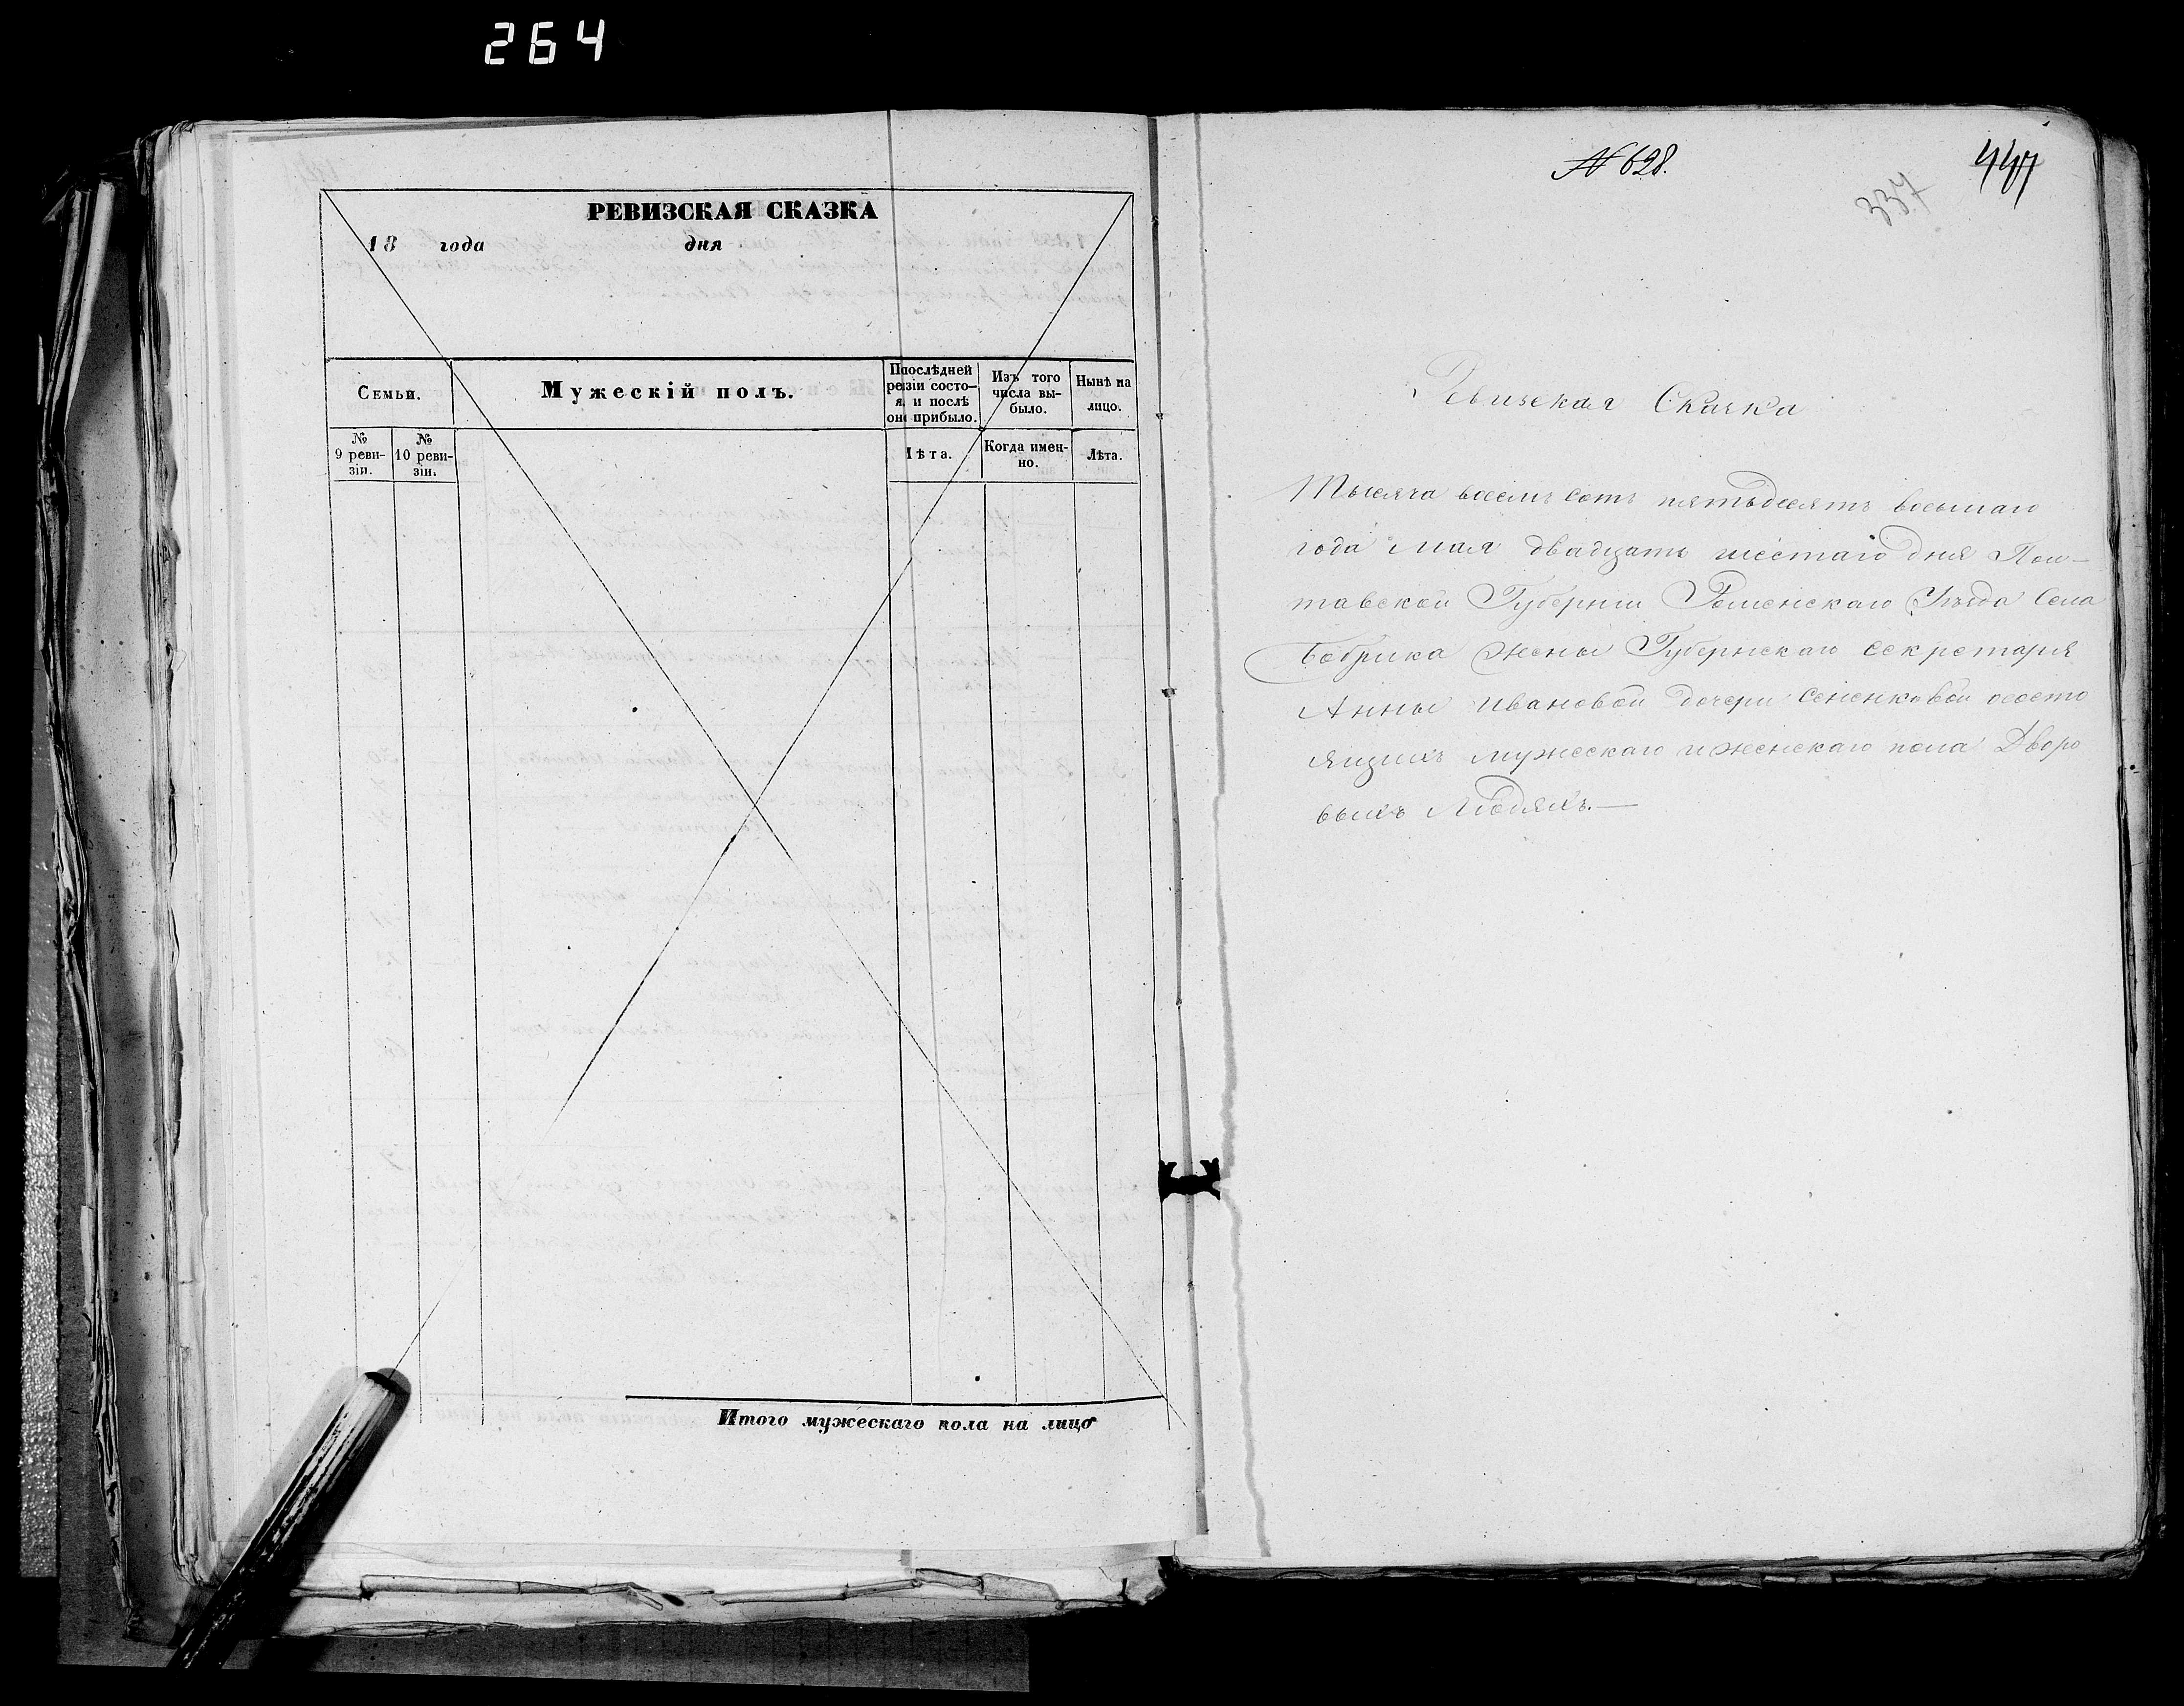 264
РЕВИЗСКАЯ СКАЗКА
18 года дня
Семьи.
Мужескій полъ.
Послѣдней
ревизіи состо-
я. и послѣ
оно прибыло.
Изъ того
числа вы-
было.
Нынѣ на
лицо.
№
9 реви-
зіи.
№
10 реви-
зіи.
Лѣта.
Когда имен-
но.
Лѣта.
Итого мужескаго пола на лицо
№ 628.
447
337
Ревизская Сказка
Тысяча восемь сотъ пятьдесятъ восьмаго
года мая двадцать шестаго дня Пол-
тавской Губерніи Роменскаго Уѣзда Села
Бобрика Жены Губернскаго Секретаря
Анны Ивановой дочери Сененковой о состо
ящихъ мужескаго и женскаго пола Дворо
выхъ Людяхъ.—